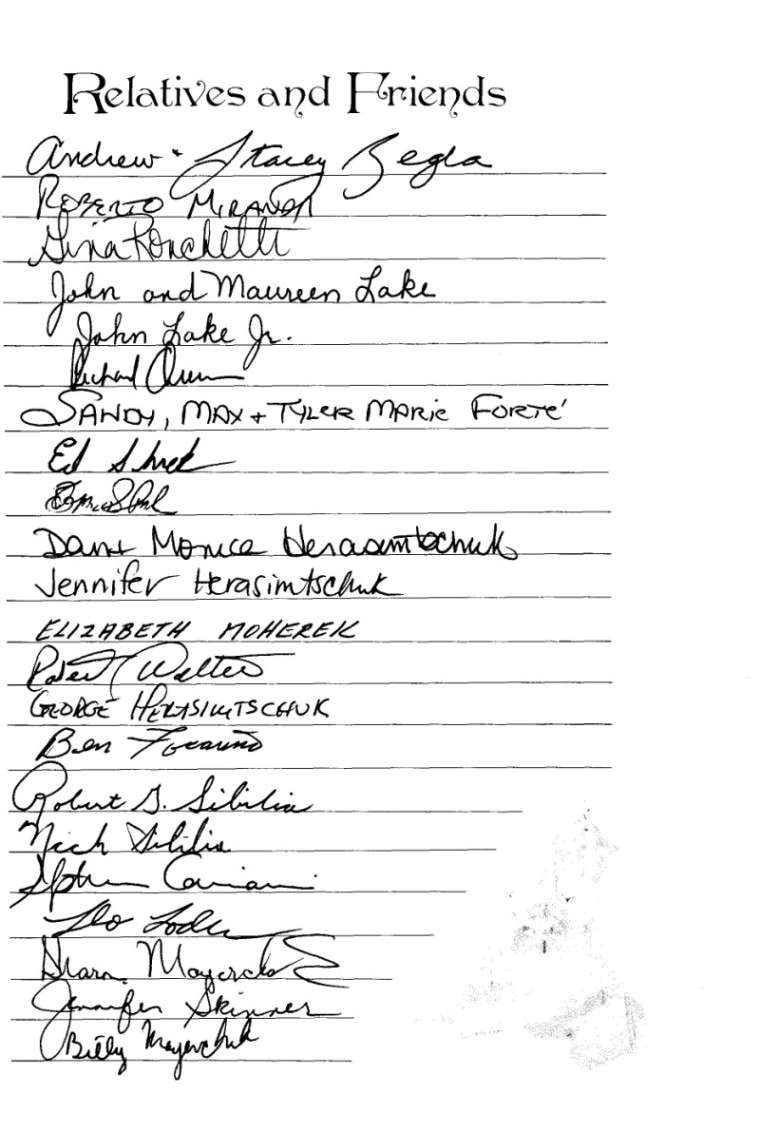 Relatives and Friends
Andrew + Stacey Begla
ROBERTO MIRANDA
Gina Ronchetti
John and Maureen Lake
John Lake Jr.
Richard
SANDY, MAX + TYLER MARIE FORTE'
Ed
Dan + Monica Herasimtschuk
Jennifer Herasimtschuk
ELIZABETH MOHEREK
Robert Walter
GEORGE HERASIMTSCHUK
Ben
Robert S. Sibilia
Nick Sibilia
Stephen
Flo
Diana
Jennifer Skinner
Billy Mayerchuk